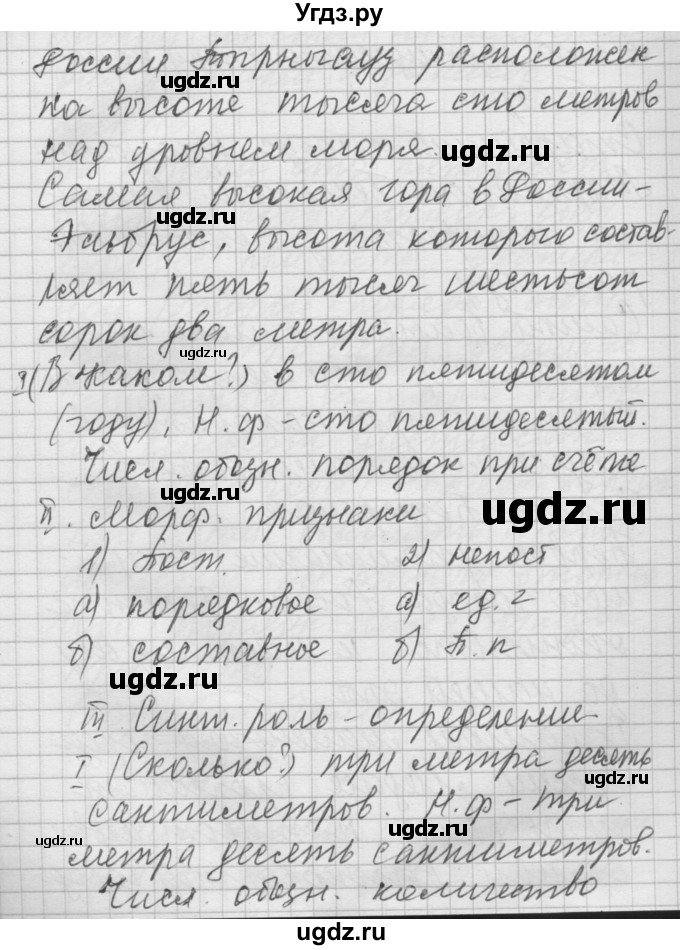 Угдз.ру
России Тырныауз расположен
на высоте тысяча сто метров
над уровнем моря.
ugdz.ru
ugdz.ru
Самая высокая гора в России -
ugdz.ru
Эльбрус, высота которого состав-
ляет пять тысяч шестьсот
ugdz.ru
ugdz.ru
сорок два метра.
ugdz.ru
I (В каком?) в сто пятидесятом
(году), Н.ф - сто пятидесятый.
Числ. обозн. порядок при счёте
II. Морф. признаки
ugdz.ru
1) Пост. 2) непост
а) порядковое а) ед. г
б) составное б) П.п
ugdz.ru
III Синт. роль - определение
I (Сколько?) три метра десять
ugdz.ru
сантиметров. Н.ф - три
ugdz.ru
ugdz.ru
метра десять сантиметров.
Числ. обозн. количество
ugdz.ru
ugdz.ru